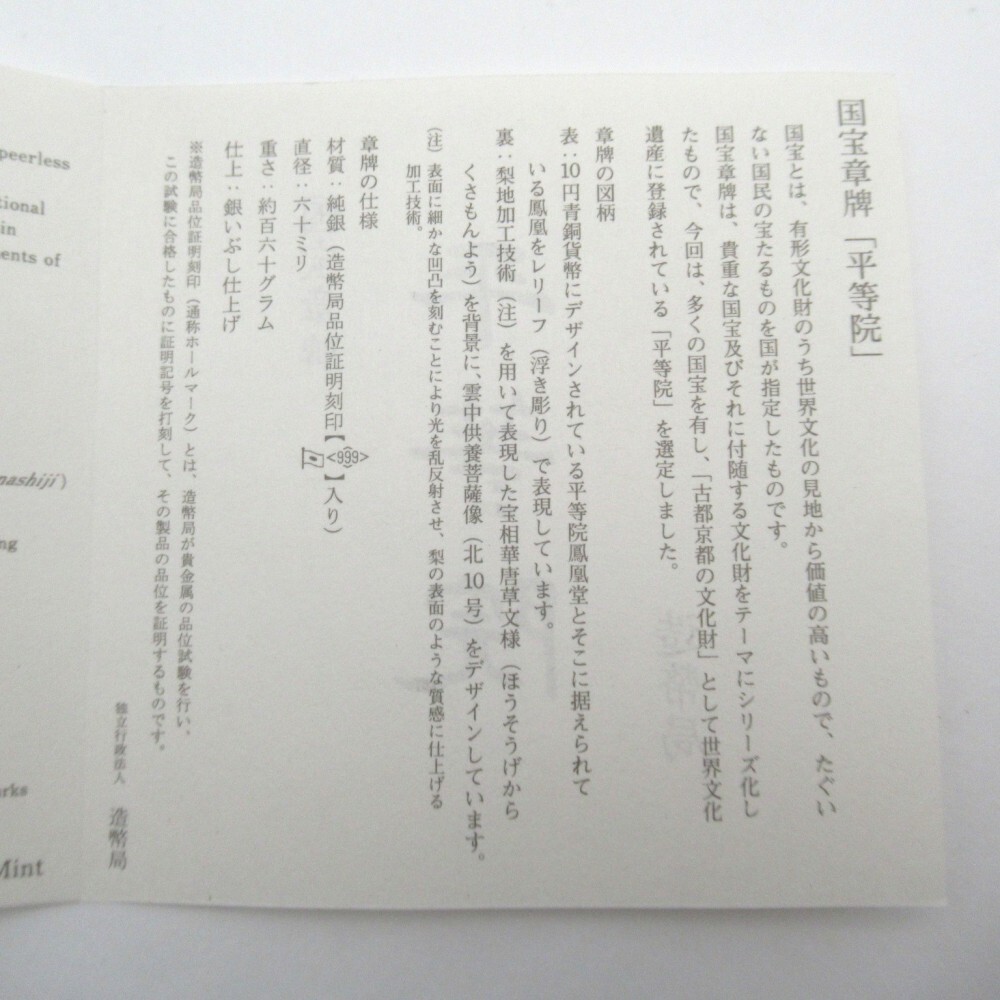 国宝章牌「平等院」
国宝とは、有形文化財のうち世界文化の見地から価値の高いもので、たぐい
ない国民の宝たるものを国が指定したものです。
国宝章牌は、貴重な国宝及びそれに付随する文化財をテーマにシリーズ化し
たもので、今回は、多くの国宝を有し、「古都京都の文化財」として世界文化
遺産に登録されている「平等院」を選定しました。
章牌の図柄
表：10円青銅貨幣にデザインされている平等院鳳凰堂とそこに据えられて
いる鳳凰をレリーフ（浮き彫り）で表現しています。
裏：梨地加工技術（注）を用いて表現した宝相華唐草文様（ほうそうげから
くさもんよう）を背景に、雲中供養菩薩像（北10号）をデザインしています。
（注）表面に細かな凹凸を刻むことにより光を乱反射させ、梨の表面のような質感に仕上げる
加工技術。
章牌の仕様
材質：純銀（造幣局品位証明刻印【<999>】入り）
直径：六十ミリ
重さ：約百六十グラム
仕上：銀いぶし仕上げ
※造幣局品位証明刻印（通称ホールマーク）とは、造幣局が貴金属の品位試験を行い、
この試験に合格したものに証明記号を打刻して、その製品の品位を証明するものです。
独立行政法人 造幣局
peerless
in
ents of
nashiji)
Mint